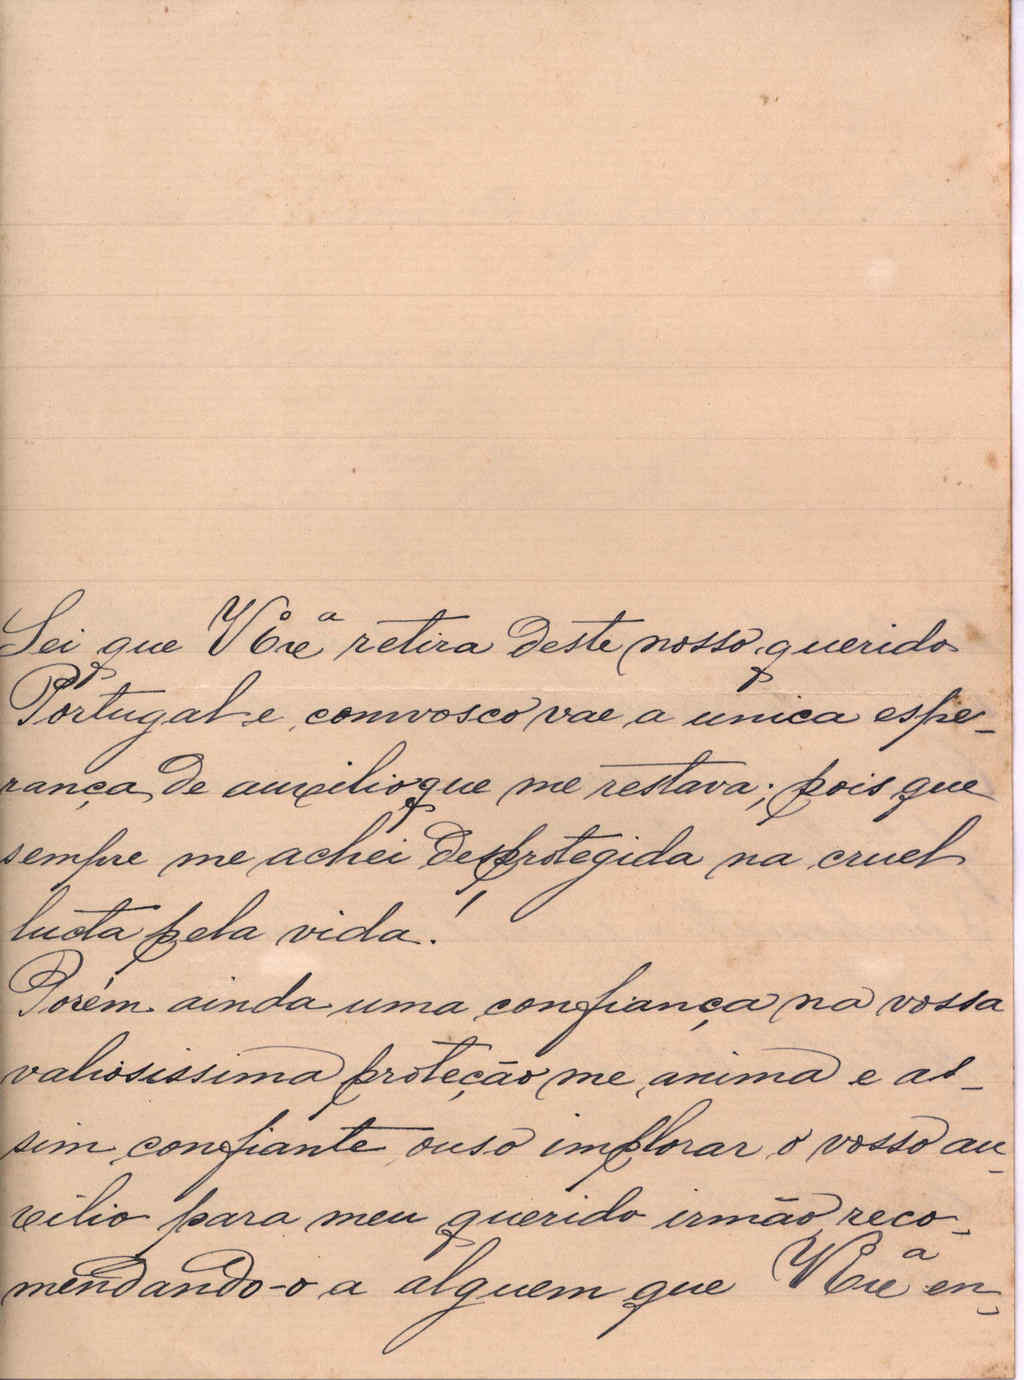 Sei que V Exª retira deste nosso querido
Portugal e comvosco vae a unica espe-
rança de auxilio que me restava; pois que
sempre me achei desprotegida na cruel
lucta pela vida!
Porém ainda uma confiança na vossa
valiosissima proteção me anima e as-
sim confiante ouso implorar o vosso au-
xilio para meu querido irmão reco-
mendando-o a alguem que V Exª en-